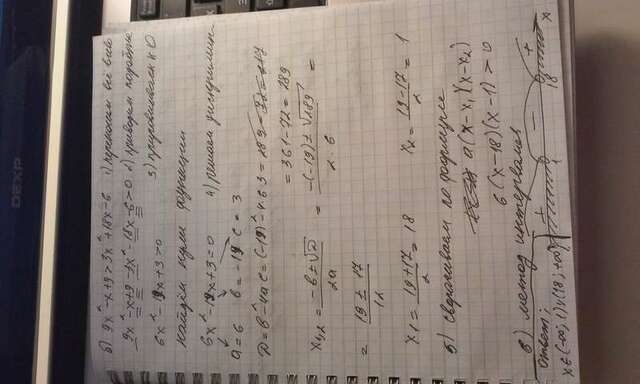 DEXP
б) 9x²-x+9>3x²+18x-6 1) переносим всё влево
9x²-x+9-3x²-18x-6>0 2) приводим подобные
6x²-19x+3>0 3) приравниваем к 0
найдём нули функции
6x²-19x+3=0 4) решаем дискримин-
a=6 b=-19 c=3
D=b²-4ac=(-19)²-4·6·3=
=361-72=289
x1,2 = (-b±√D)/2a = (-(-19)±√289)/2·6 =
= (19±17)/12
x1=(19+17)/2=18 x2=(19-17)/2=1
5) сворачиваем по формуле
a(x-x1)(x-x2)
6(x-18)(x-1)>0
6) метод интервалов
+ - +
1 18 x
Ответ:
x∈(-∞;1)∪(18;+∞)